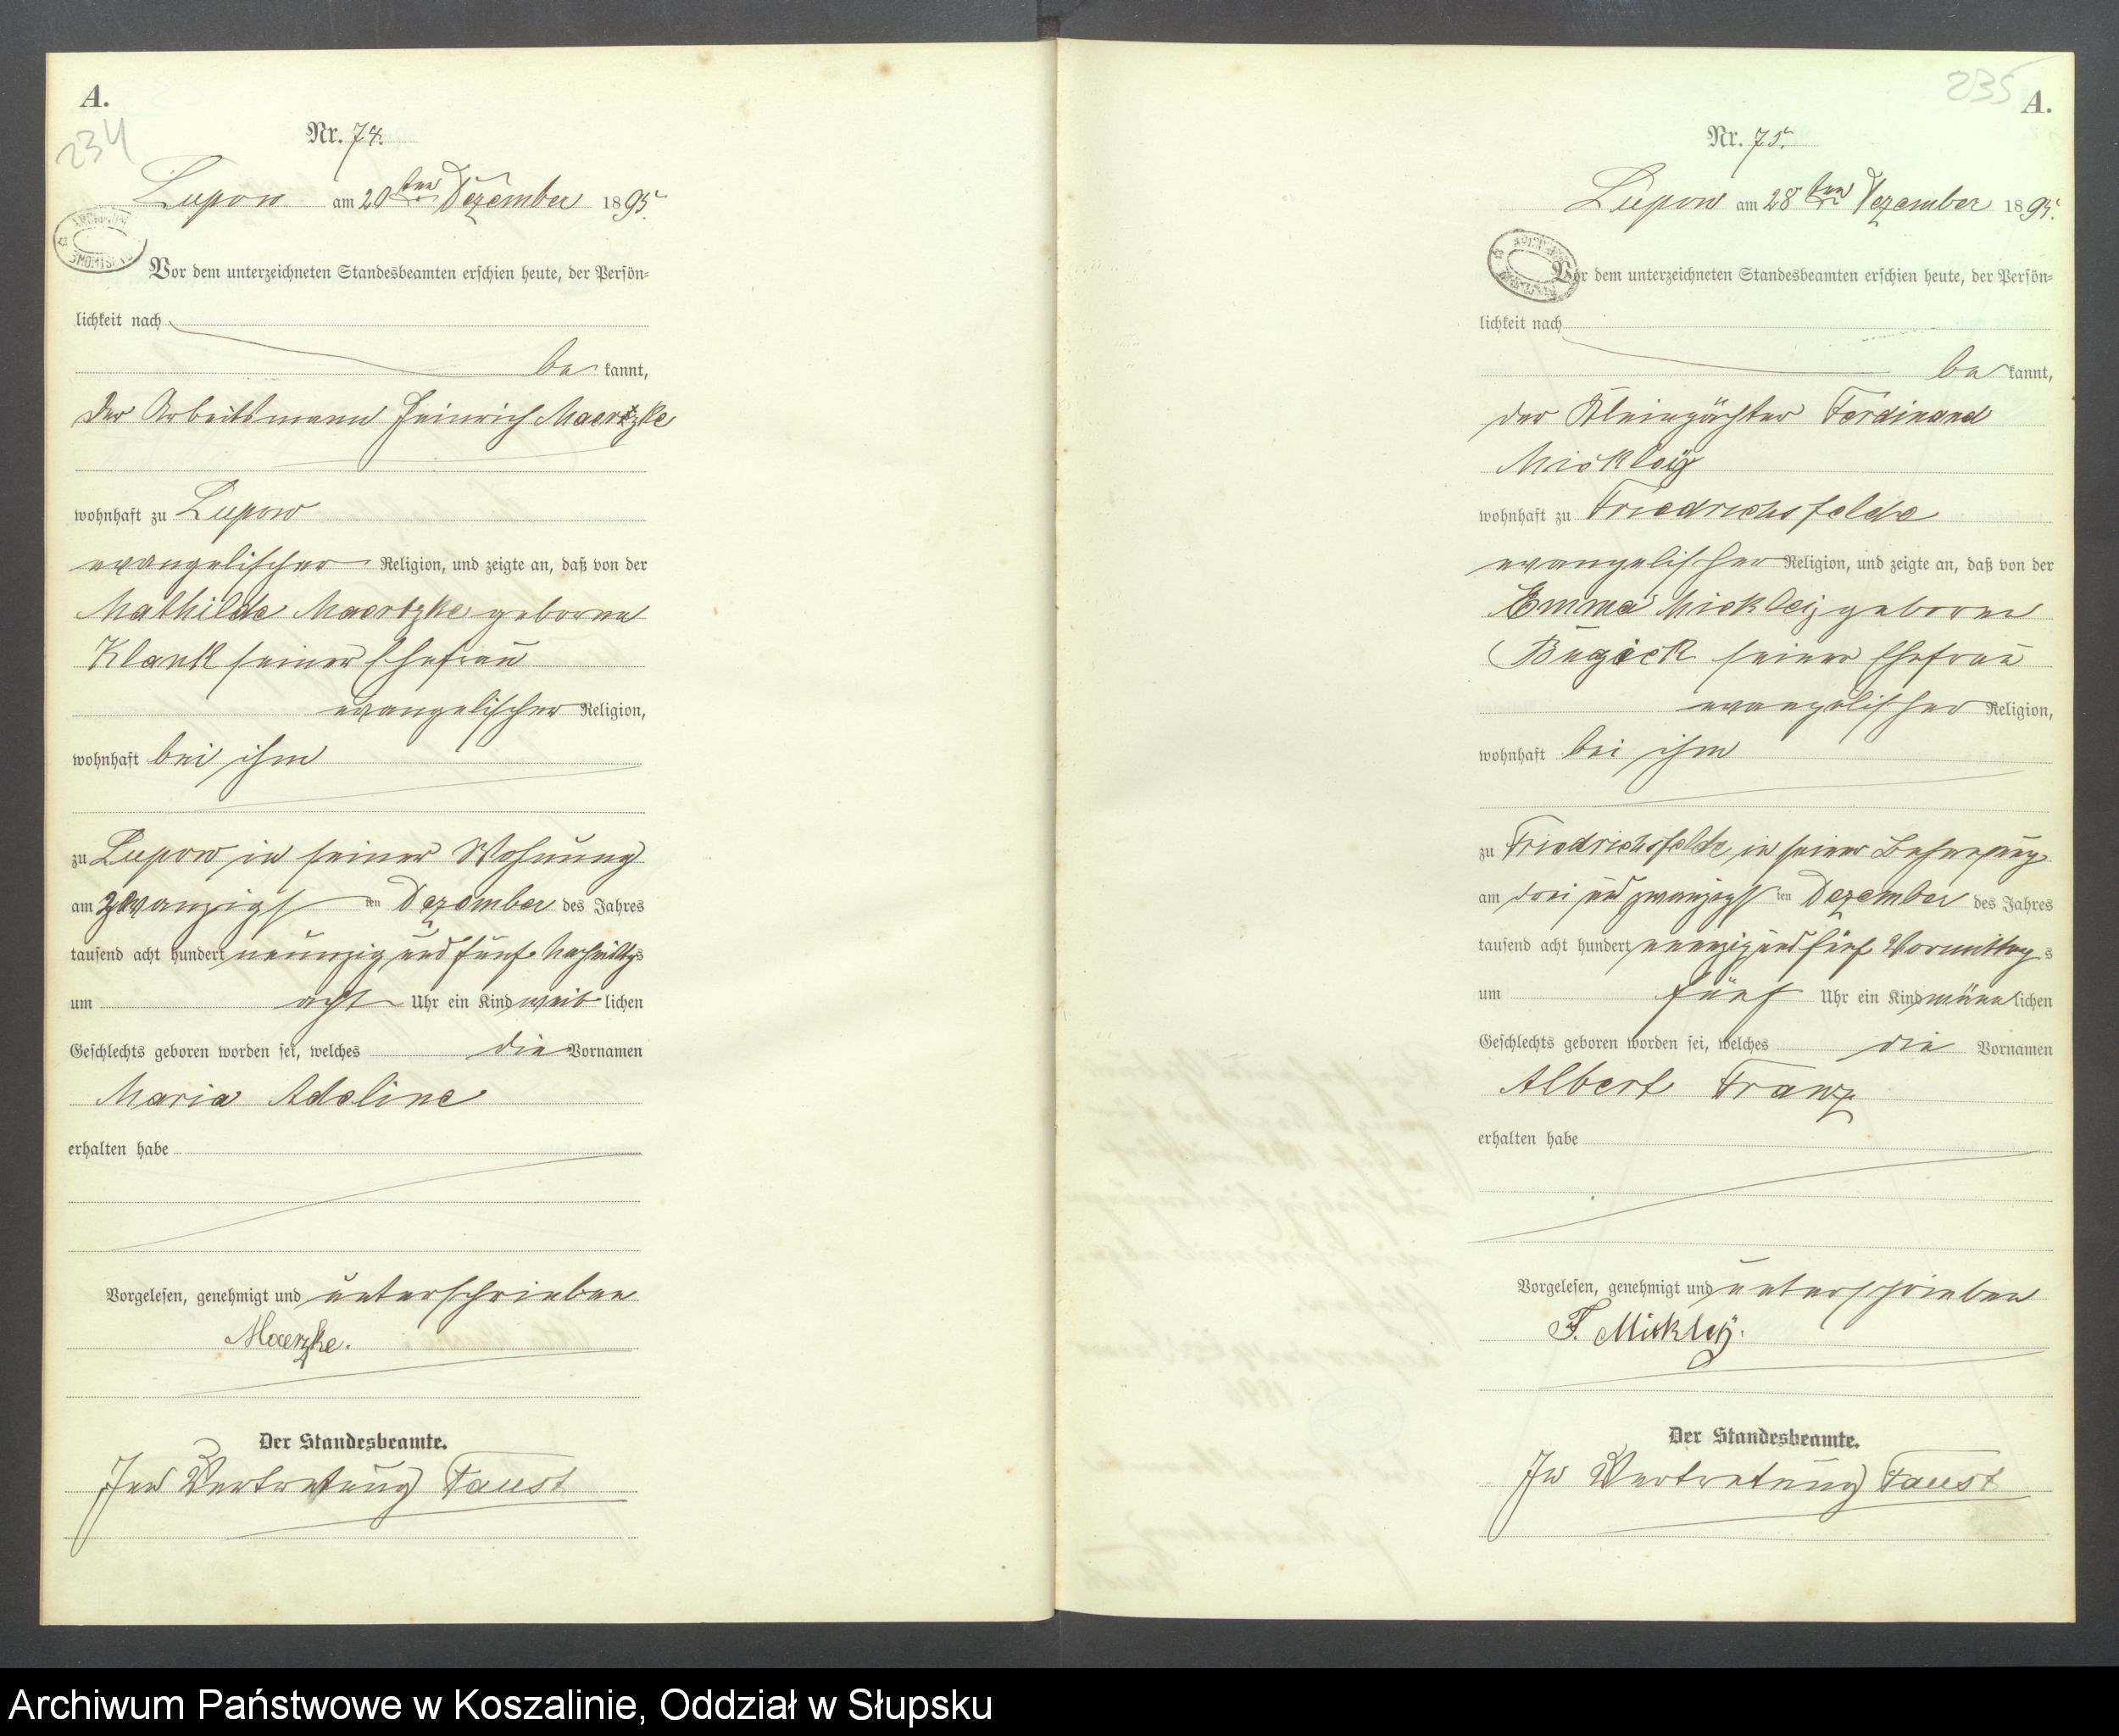 A.
234
Nr. 74.
Lupow am 20ten Dezember 1895.
Vor dem unterzeichneten Standesbeamten erschien heute, der Persön-
lichkeit nach
be kannt,
der Arbeitsmann Heinrich Maertzke
wohnhaft zu Lupow
evangelischer Religion, und zeigte an, daß von der
Mathilde Maertzke geborne
Klank seiner Ehefrau
evangelischer Religion,
wohnhaft bei ihm
zu Lupow in seiner Wohnung
am zwanzigsten Dezember des Jahres
tausend acht hundert neunzig und fünf Nachmittags
um acht Uhr ein Kind weiblichen
Geschlechts geboren worden sei, welches die Vornamen
Maria Adeline
erhalten habe
Vorgelesen, genehmigt und unterschrieben
Maerzke.
Der Standesbeamte.
In Vertretung Faust
235
A.
Nr. 75.
Lupow am 28ten Dezember 1895.
Vor dem unterzeichneten Standesbeamten erschien heute, der Persön-
lichkeit nach
be kannt,
der Kleinpächter Ferdinand
Mickleÿ
wohnhaft zu Friedrichsfelde
evangelischer Religion, und zeigte an, daß von der
Emma Mickleÿ geborne
seiner Ehefrau
evangelischer Religion,
wohnhaft bei ihm
zu Friedrichsfelde in seiner Behausung
am drei und zwanzigsten Dezember des Jahres
tausend acht hundert neunzig und fünf Vormittags
um fünf Uhr ein Kind männlichen
Geschlechts geboren worden sei, welches die Vornamen
Albert Franz
erhalten habe
Vorgelesen, genehmigt und unterschrieben
F. Mickleÿ.
Der Standesbeamte.
In Vertretung Faust
Archiwum Państwowe w Koszalinie, Oddział w Słupsku